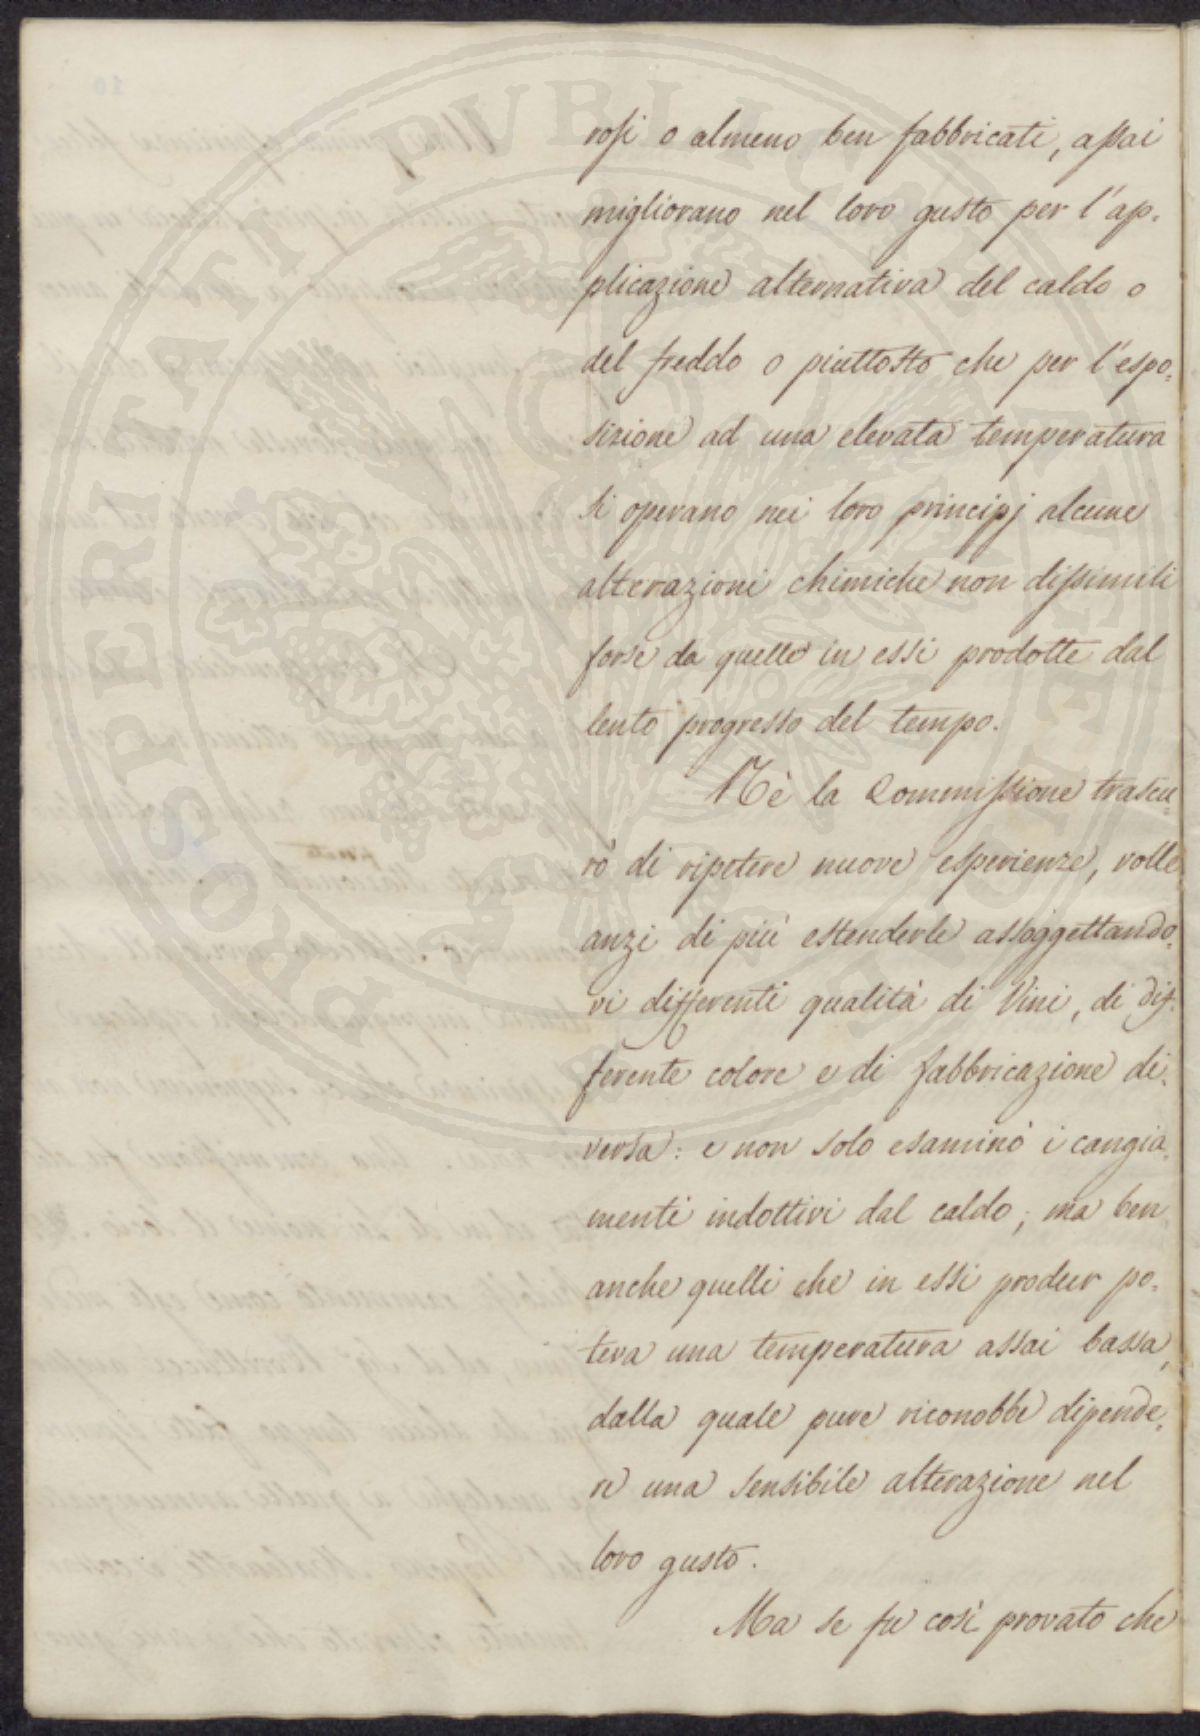 rosi o almeno ben fabbricati, assai
migliorano nel loro gusto per l'ap-
plicazione alternativa del caldo o
del freddo o piuttosto che per l'espo-
sizione ad una elevata temperatura
si operano nei loro principj alcune
alterazioni chimiche non dissimili
forse da quelle in essi prodotte dal
lento progresso del tempo.
Nè la Commissione trascu-
rò di ripetere nuove esperienze, volle
anzi di più estenderle assoggettando-
vi differenti qualità di Vini, di dif-
ferente colore e di fabbricazione di-
versa: e non solo esaminò i cangia-
menti indottivi dal caldo, ma ben
anche quelli che in essi produr po-
teva una temperatura assai bassa,
dalla quale pure riconobbe dipende-
re una sensibile alterazione nel
loro gusto.
Ma se fu così provato che
PROSPERITATI PUBLICAE